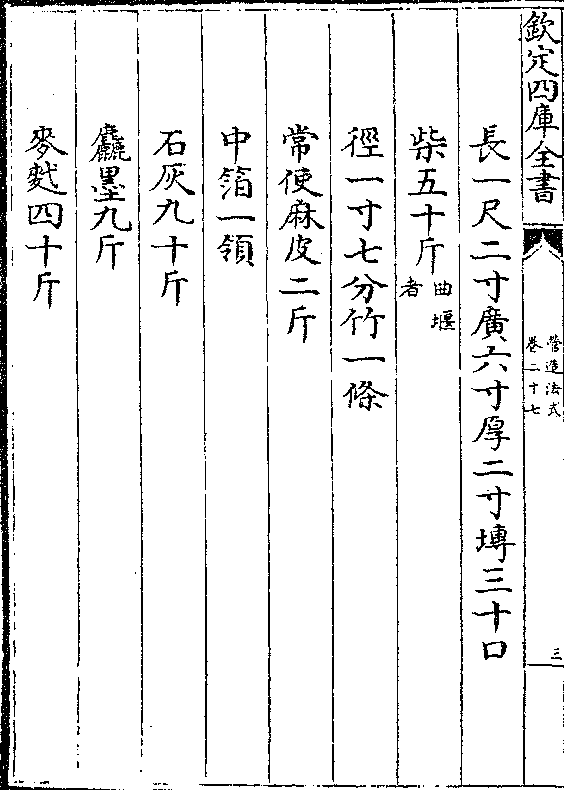 欽定四庫全書
營造法式
卷二十七
三
長一尺二寸廣六寸厚二寸塼三十口
柴五十斤曲堰者
徑一寸七分竹一條
常使麻皮二斤
中箔一領
石灰九十斤
麤墨九斤
麥䴬四十斤